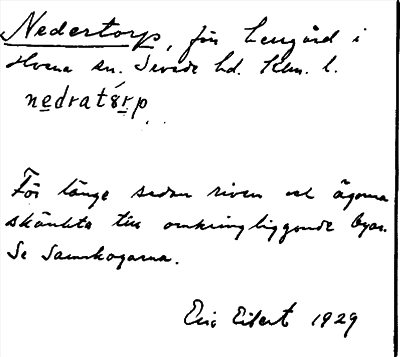 Nedertorp, för herrgård i
Hvena sn. Sevede hd. Klm. l.
nedratǻrp
För länge sedan riven och ägorna
skänkta till omkringliggande byar.
Se Samskogarna.
Eric Eilert 1929